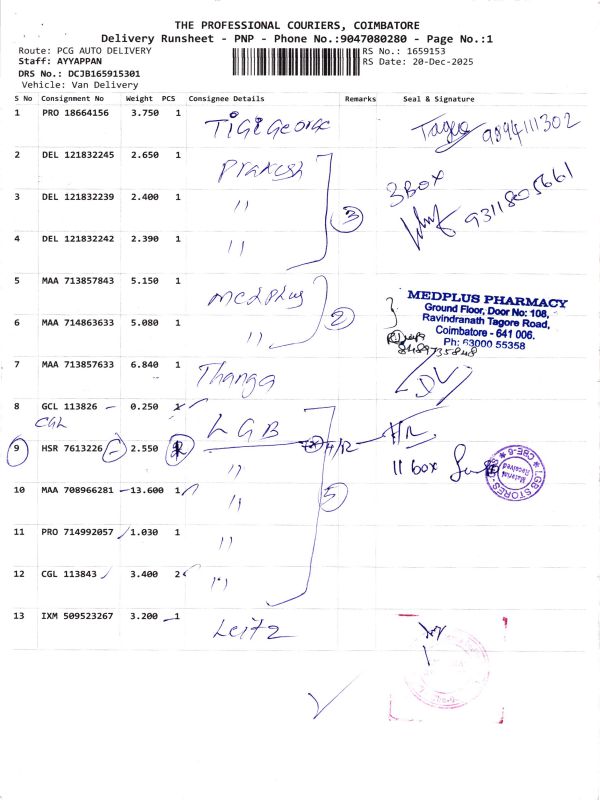 THE PROFESSIONAL COURIERS, COIMBATORE
Delivery Runsheet - PNP - Phone No.:9047080280 - Page No.:1
Route: PCG AUTO DELIVERY
RS No.: 1659153
Staff: AYYAPPAN
RS Date: 20-Dec-2025
DRS No.: DCJB165915301
Vehicle: Van Delivery
S No Consignment No Weight PCS Consignee Details Remarks Seal & Signature
1 PRO 18664156 3.750 1 TiGi George 9894111302
2 DEL 121832245 2.650 1 Prakash
3 BOX
3 DEL 121832239 2.400 1 " 3 9311805661
4 DEL 121832242 2.390 1 "
5 MAA 713857843 5.150 1 medplus
MEDPLUS PHARMACY
Ground Floor, Door No: 108,
Ravindranath Tagore Road,
Coimbatore - 641 006.
Ph: 63000 55358
6 MAA 714863633 5.080 1 " 2
8489735848
7 MAA 713857633 6.840 1 Thanga
8 GCL 113826 0.250 1 LGB
CGL
9 HSR 7613226 2.550 "
11 box
LGB STORES
CBE-6
Material Received
10 MAA 708966281 13.600 1 " 5
11 PRO 714992057 1.030 1 "
12 CGL 113843 3.400 2 "
13 IXM 509523267 3.200 1 Leitz